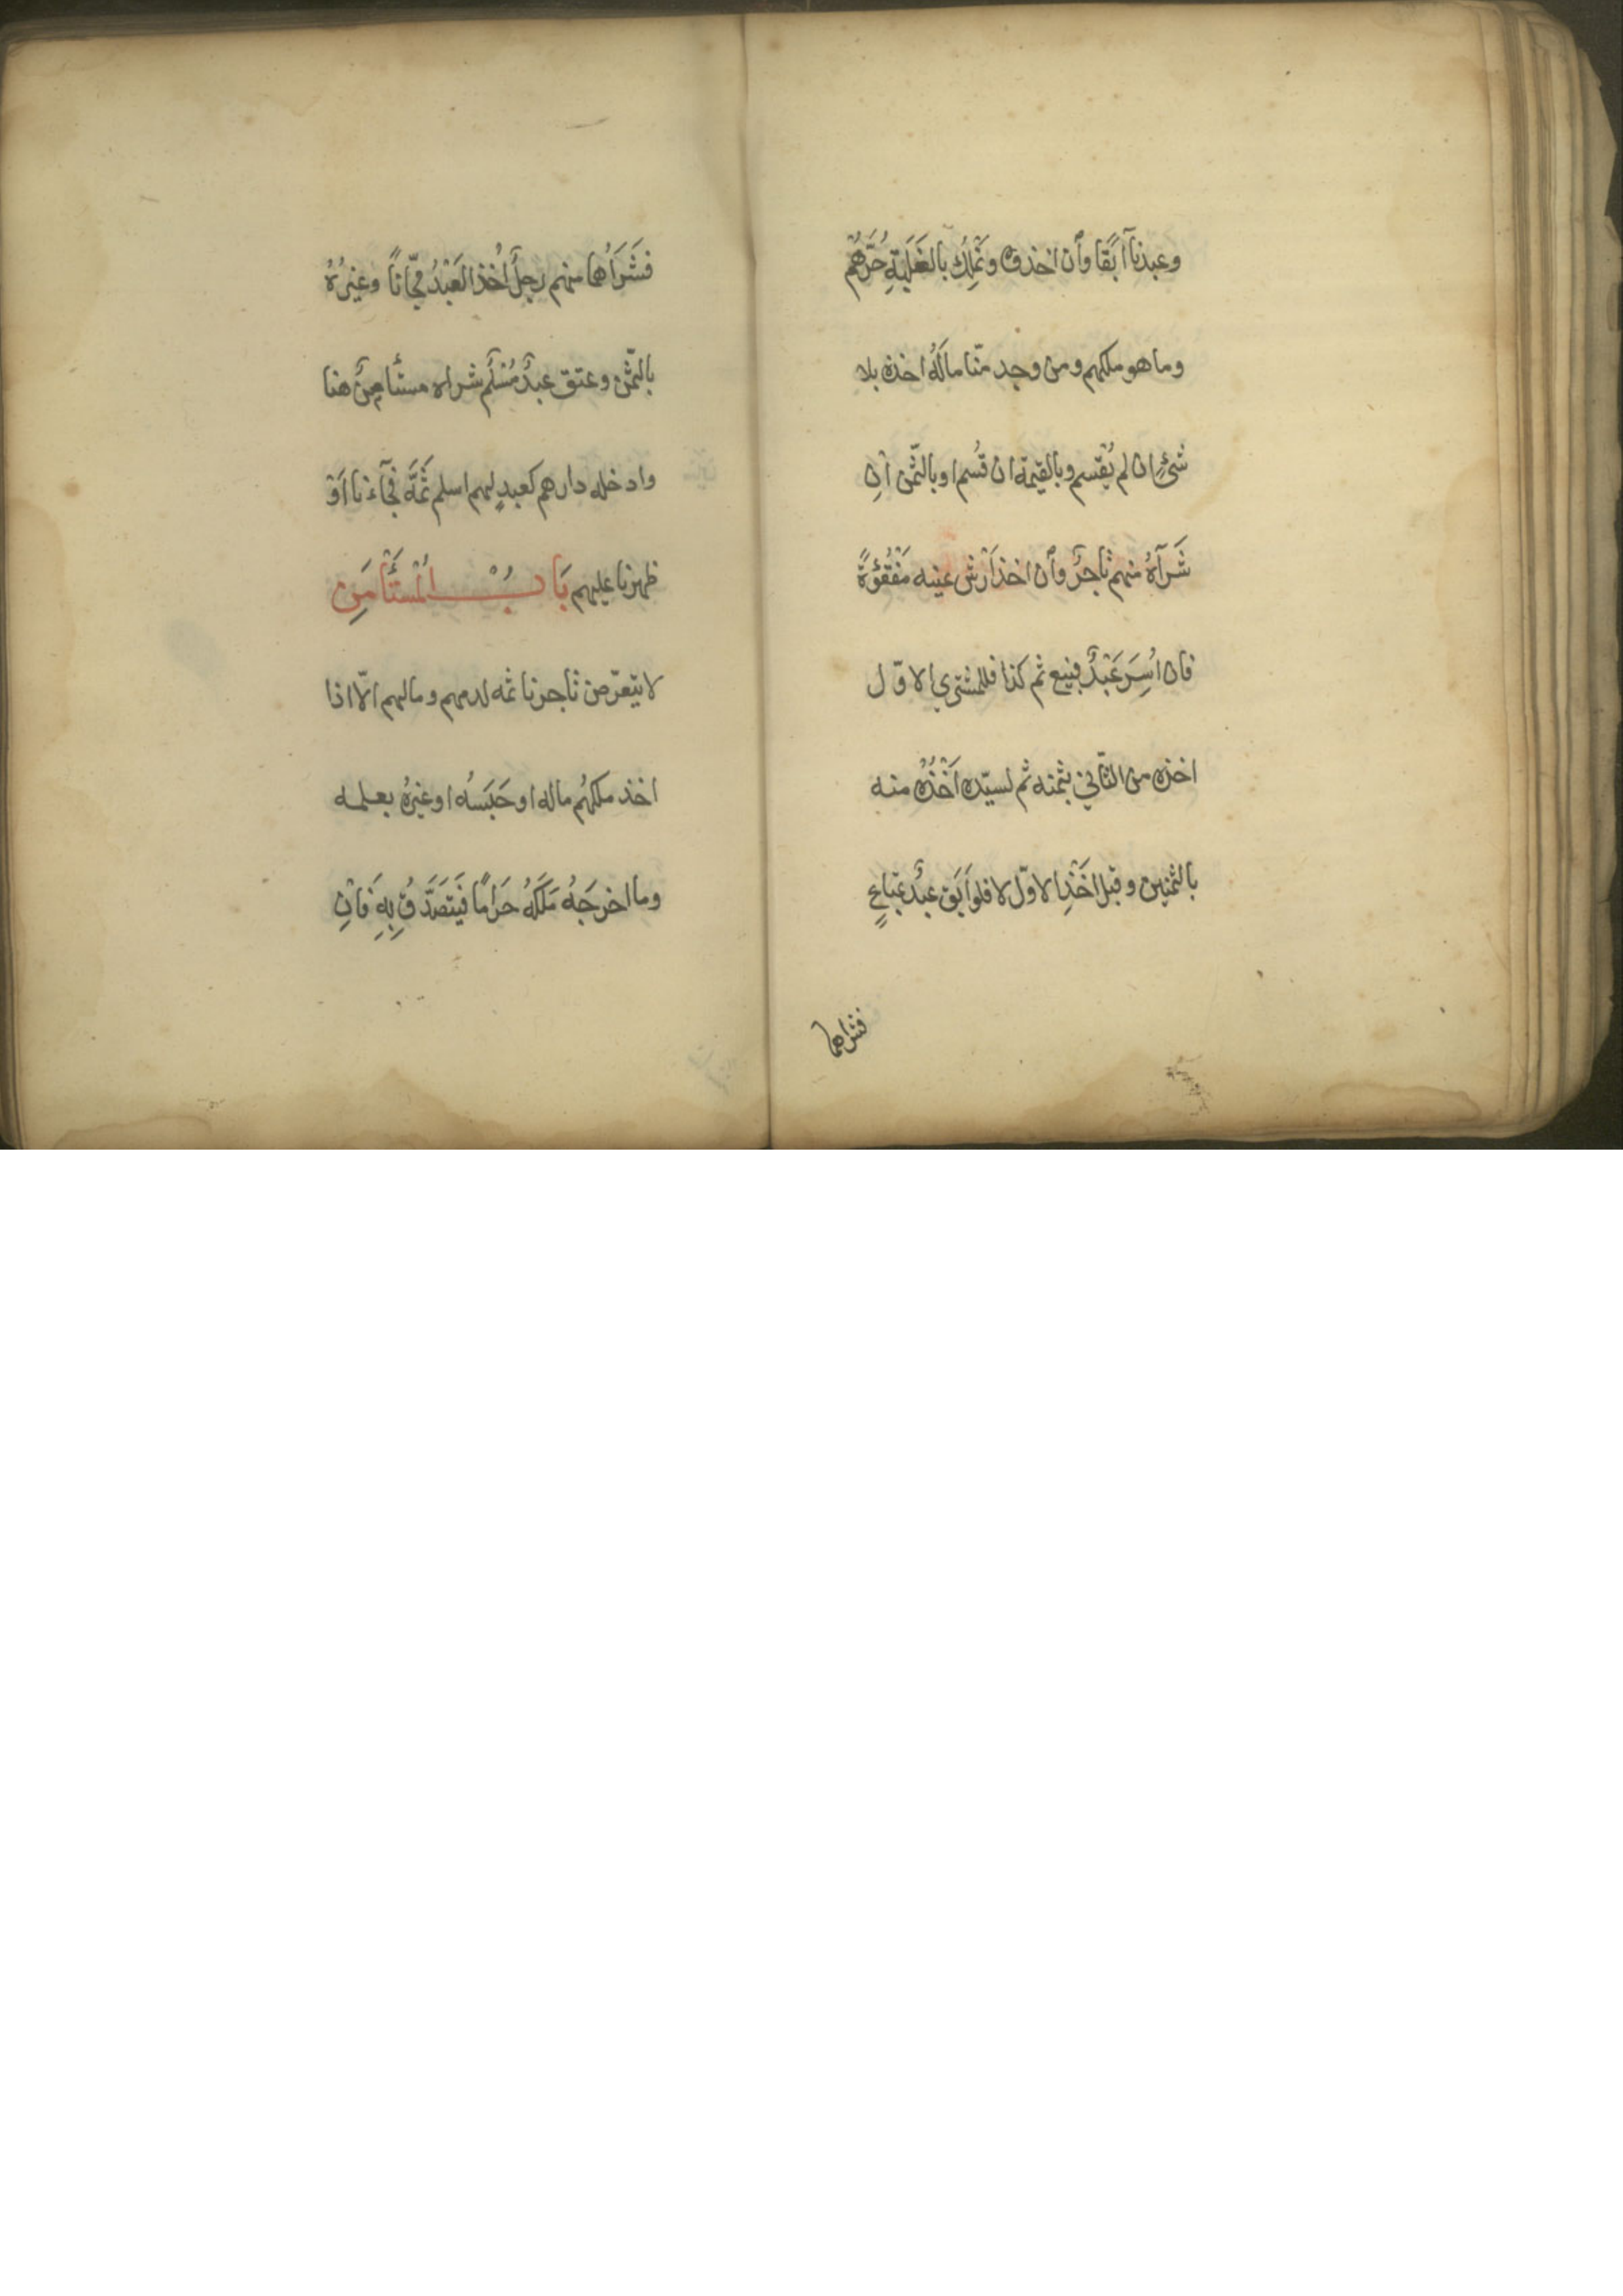 وعبدنا آبقا وأن اخذوه ونملك بالغَلَبَةِ حُرَّهُم
وما هو ملكهم ومن وجد منّا مالَهُ اخذه بلا
شئٍ ان لم يُقسم وبالقيمة ان قُسم او بالثّمن اِنِ
شَرَآهُ منهم تاجرٌ وأن اخذ اَرْشَ عينه مَفْقُؤَةً
فان اُسِرَ عَبْدٌ فبيع ثم كذا فللمشتري الاوّل
اخذه من الثّاني بثمنه ثم لسيّده اَخْذُهُ منه
بالثمنين وقبل اَخْذِ الاوّل لا فلو اَبَقَ عبدٌ بمتاعٍ
فشراهما
فشَرَاهُما منهم رجلٌ اُخذ العَبْدُ مجّاناً وغيرُهُ
بالثّمن وعتق عبدٌ مُسْلمٌ شراه مستأمِنٌ هنا
وادخله دارهم كعبدٍ لهم اسلم ثَمَّهَ فجآءنا اَوْ
ظهرنا عليهم بَابُ الْمُسْتَأْمَنِ
لا يتعرّض تاجرنا ثمه لدمهم ومالهم الّا اذا
اخذ ملكهُم ماله او حَبَسُه او غيرُه بعلمه
وما اخرجَهُ مَلَكَهُ حَرَامًا فَيَتَصَدَّقُ بِهِ فَاِنِ